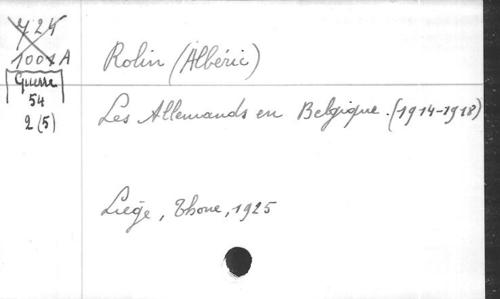 724
1001 A
Guerre
54
2 (5)
Robin (Albéric)
Les Allemands en Belgique. (1914-1918)
Liège, Thone, 1925